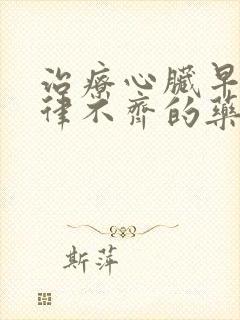 治療心臟早
律不齊的藥
斯萍